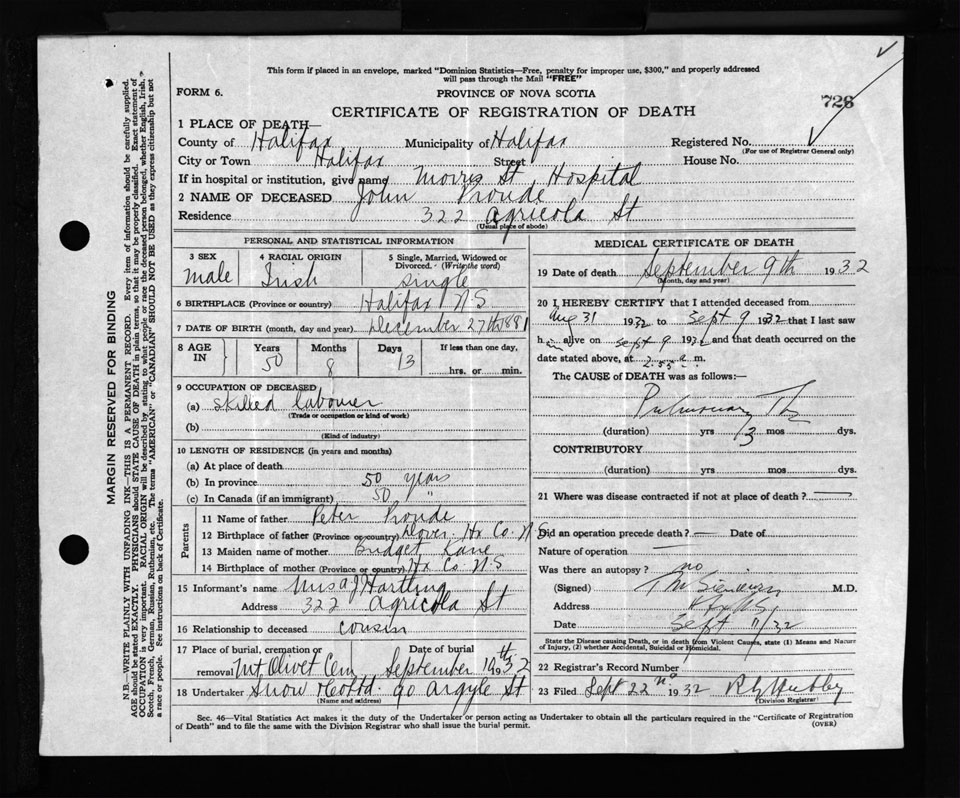 This form if placed in an envelope, marked "Dominion Statistics—Free, penalty for improper use, $300," and properly addressed
will pass through the Mail "FREE"
FORM 6.
PROVINCE OF NOVA SCOTIA
726
CERTIFICATE OF REGISTRATION OF DEATH
1 PLACE OF DEATH—
County of Halifax Municipality of Halifax Registered No.
(For use of Registrar General only)
City or Town Halifax Street House No.
If in hospital or institution, give name Morris St Hospital
2 NAME OF DECEASED John Proude
Residence 322 Agricola St
(Usual place of abode)
PERSONAL AND STATISTICAL INFORMATION
3 SEX 4 RACIAL ORIGIN 5 Single, Married, Widowed or Divorced. (Write the word)
male Irish single
6 BIRTHPLACE (Province or country) Halifax N.S.
7 DATE OF BIRTH (month, day and year) December 27th 1881
8 AGE IN Years Months Days If less than one day,
50 8 13 hrs. or min.
9 OCCUPATION OF DECEASED
(a) skilled labourer
(Trade or occupation or kind of work)
(b)
(Kind of industry)
10 LENGTH OF RESIDENCE (in years and months)
(a) At place of death
(b) In province 50 years
(c) In Canada (if an immigrant) 50 "
Parents
11 Name of father Peter Proude
12 Birthplace of father (Province or country) Dover Hx Co. N.S.
13 Maiden name of mother Bridget Kane
14 Birthplace of mother (Province or country) Hx Co. N.S.
15 Informant's name Hartling
Address 322 Agricola St
16 Relationship to deceased cousin
17 Place of burial, cremation or removal Date of burial
Mt Olivet Cem September 1932
18 Undertaker Snow & Co Ltd. 90 Argyle St
(Name and address)
MEDICAL CERTIFICATE OF DEATH
19 Date of death September 9th 1932
(Month, day and year)
20 I HEREBY CERTIFY that I attended deceased from
Aug 31 1932 to Sept 9 1932 that I last saw
h alive on Sept 9 1932 and that death occurred on the
date stated above, at 2.55 a.m.
The CAUSE of DEATH was as follows:—
Pulmonary Tb
(duration) yrs 3 mos dys.
CONTRIBUTORY
(duration) yrs mos dys.
21 Where was disease contracted if not at place of death? —
Did an operation precede death? — Date of
Nature of operation —
Was there an autopsy? no
(Signed) M.D.
Address
Date Sept 11/32
State the Disease causing Death, or in death from Violent Causes, state (1) Means and Nature
of Injury, (2) whether Accidental, Suicidal or Homicidal.
22 Registrar's Record Number
23 Filed Sept 22 1932
(Division Registrar)
Sec. 46—Vital Statistics Act makes it the duty of the Undertaker or person acting as Undertaker to obtain all the particulars required in the "Certificate of Registration
of Death" and to file the same with the Division Registrar who shall issue the burial permit. (OVER)
MARGIN RESERVED FOR BINDING
N.B.—WRITE PLAINLY WITH UNFADING INK—THIS IS A PERMANENT RECORD. Every item of information should be carefully supplied.
AGE should be stated EXACTLY. PHYSICIANS should STATE CAUSE OF DEATH in plain terms, so that it may be properly classified. Exact statement of
OCCUPATION is very important. RACIAL ORIGIN will be described by stating to what people or race the deceased person belonged, whether English, Irish,
Scotch, French, German, Russian, Ruthenian, etc. The terms "AMERICAN" or "CANADIAN" SHOULD NOT BE USED as they express citizenship but not
a race or people. See instructions on back of Certificate.